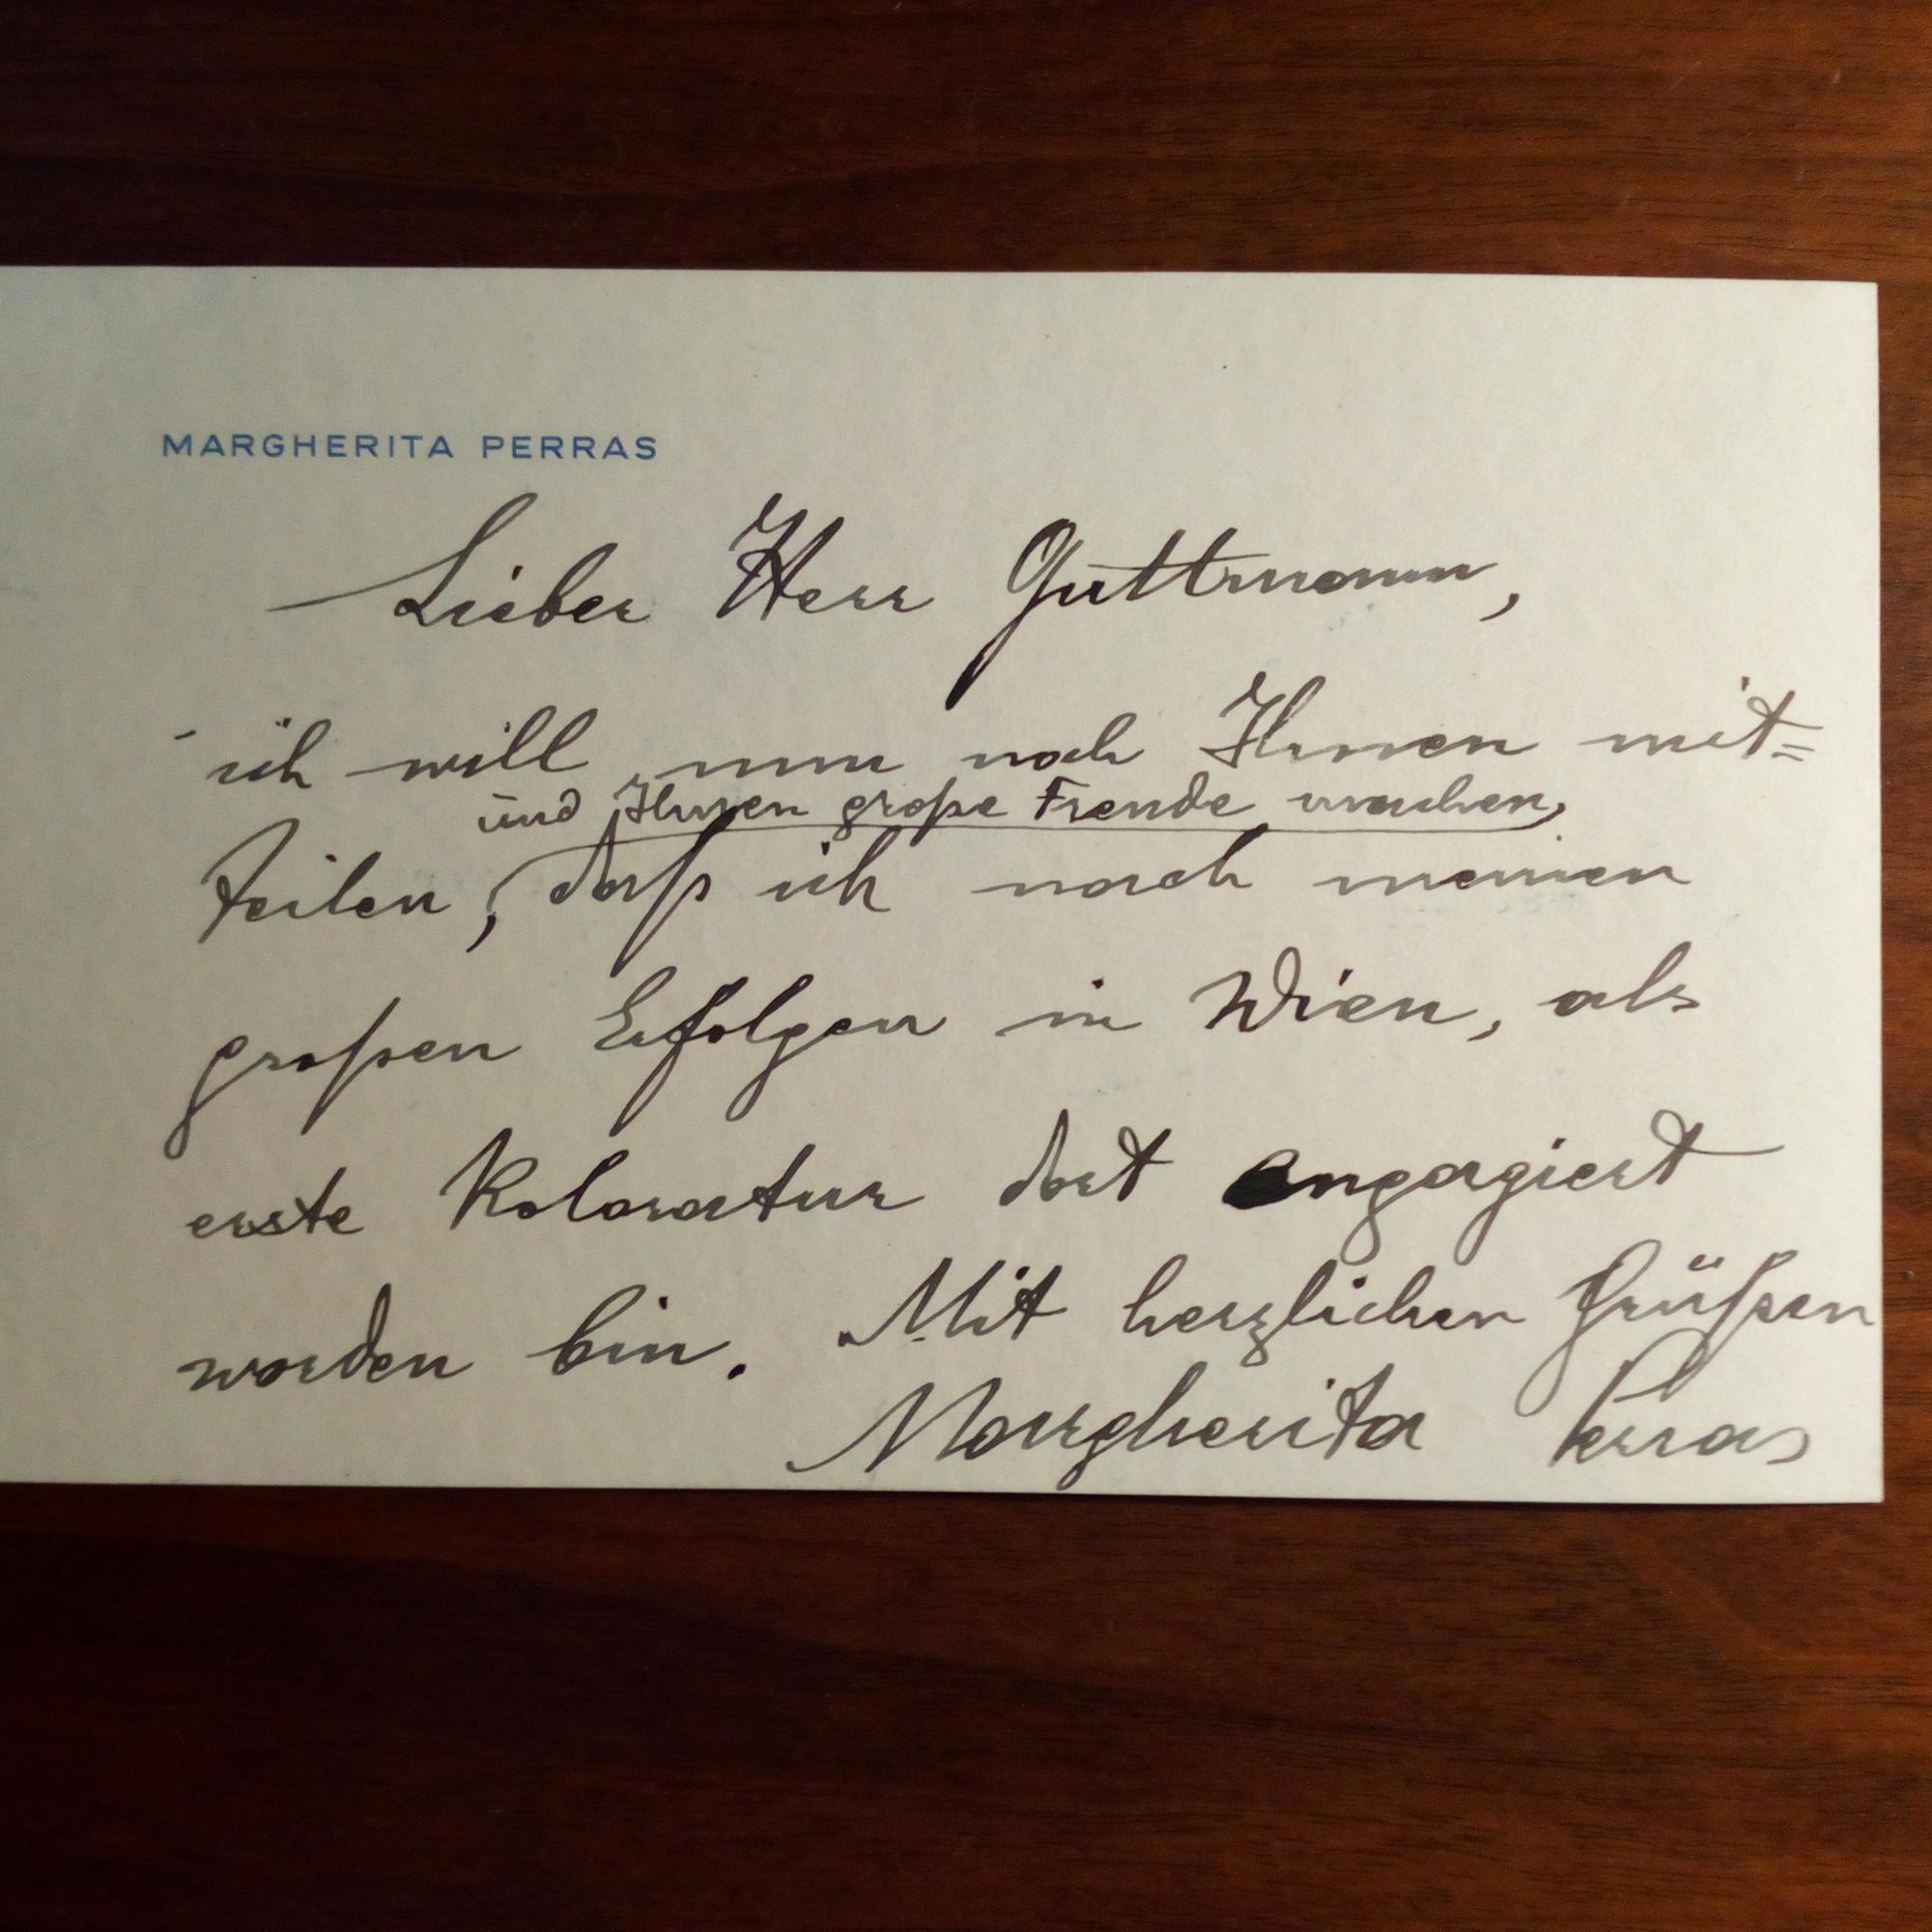 MARGHERITA PERRAS
Lieber Herr Guttmann,
ich will nun noch Ihnen mit=
und Ihnen große Freude machen,
teilen, daß ich nach meinen
großen Erfolgen in Wien, als
erste Koloratur dort engagiert
worden bin. Mit herzlichen Grüßen
Margherita Perras